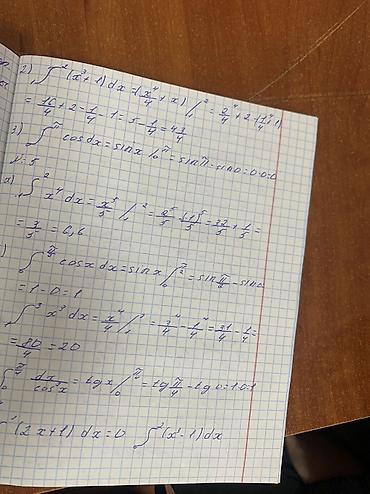 2) ∫₁² (x³+1) dx = (x⁴/4 + x) |₁² = 2⁴/4 + 2 - (1⁴/4 + 1)
= 16/4 + 2 - 1/4 - 1 = 5 - 1/4 = 4 3/4
3) ∫₀^π cos dx = sin x |₀^π = sin π - sin 0 = 0-0=0
N: 5
a) ∫ ² x⁴ dx = x⁵/5 | ² = 2⁵/5 - (1)⁵/5 = 32/5 + 1/5 =
= 6,6
) ∫₀ cos x dx = sin x |₀ = sin - sin 0
= 1 - 0 = 1
∫₁³ x³ dx = x⁴/4 |₁³ = 3⁴/4 - 1⁴/4 = 81/4 - 1/4 =
= 80/4 = 20
∫₀ dx/cos x = tg x |₀ = tg π/4 - tg 0 = 1-0=1
(2x+1) dx = 0 ∫ (x²-1) dx